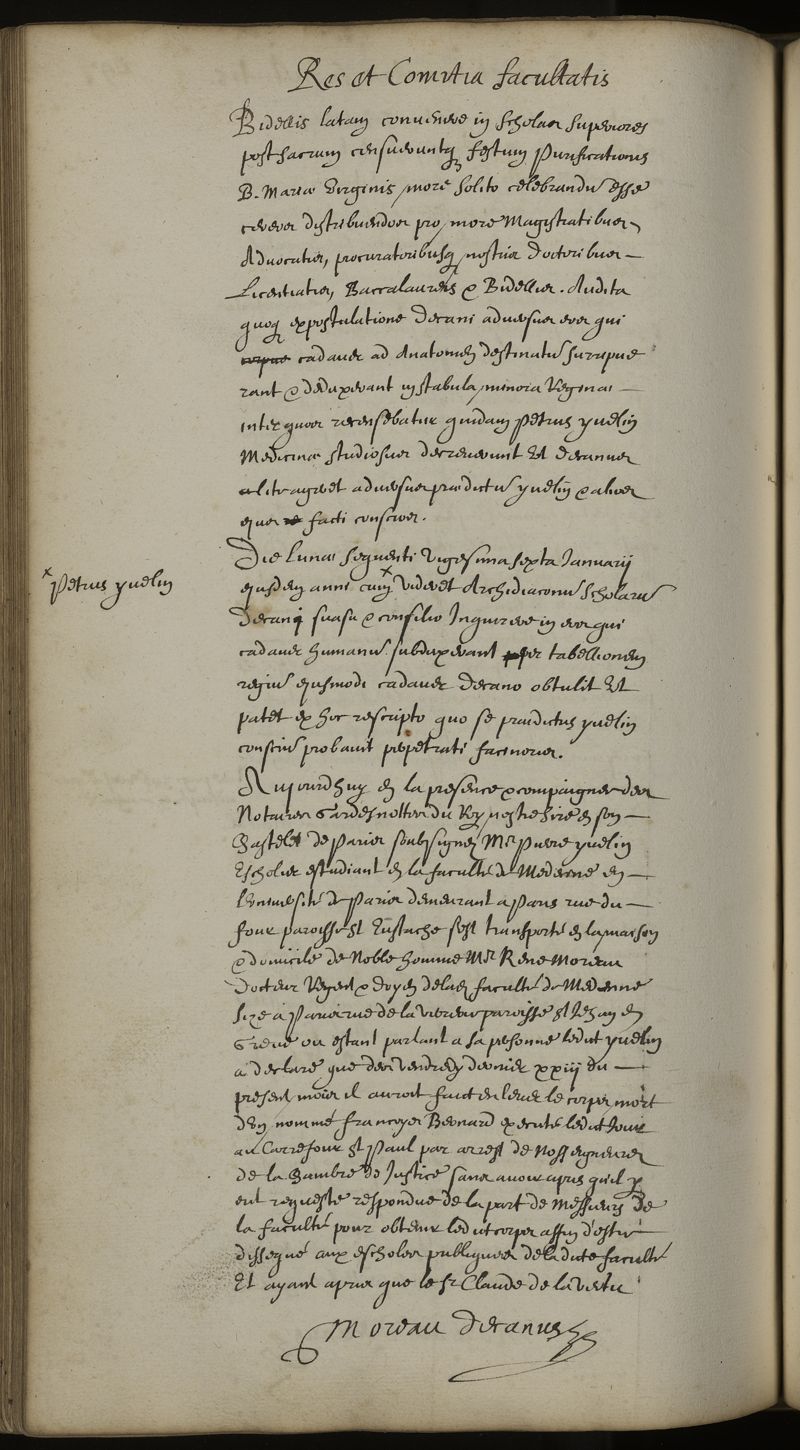 Res et Comitia facultatis
Bidellis latam convenere in Scholas superiores
post sacrum censueruntq festum Purificationis
B. Mariæ Virginis more solito celebrandu esse
cereos distribuendos pro more Magistratibus,
Advocatis, procuratoribusq nostris Doctoribus –
Licentiatis, Baccalaureis & Bidellis. Audita
quoq expostulatione Decani adversus eos qui
corpus cadaver ad Anatomen destinatu surripue
rant & deduxerant in stabula minora Reginæ –
inter quos recensebatur quidam Petrus yvelin
Medicinæ studiosus decreverunt Ut Decanus
lite ageret adversus prædictu yvelin & alios
ejus facti conscios.
Die Lunæ sequenti vigesima sexta Januarij
x Petrus yvelin
ejusdem anni cum x videret Archidiaconu Scholaru
Decani suasu & consilio Inquirere in eos qui
cadaver humanu subduxerant per tabellionem
regiu ejusmodi cadaver Decano obtulit Ut
patet ex hoc rescripto quo se prædictus yvelin
consciu probavit perpetrati facinoris.
Aujourdhuy en la presence & compaignee des
Notaires Gardesnottes du Roy nostre sire en son –
Chastelet de Paris soubsignez Mr Pierre yvelin
Escholier estudiant en la faculté de Medecine en –
l'Université de Paris demeurant a Paris rue du –
four paroisse St Eustache s'est transporté en la maison
& domicile de Noble homme Mr René Moreau
Docteur Regent & doyen de lad faculté de Medecine
size a Paris rue de la Verrerie paroisse St Jehan en
Greve ou estant parlant a sa personne ledict yvelin
a declaré que des Vendredy dernier xxiij du –
present mois il auroit faict enlever le corps mort
d'un nommé françoys Bernard executé ledict Jour
au Carrefour St Paul par arrest de Nosseigneurs
de la Chambre de Justice sans avoir apris qu'il y
eut requeste respondue de la part de Messieurs de
la faculté pour obtenir ledict corps affin d'estre
dissequé aux escholes publiques de ladicte faculté
Et ayant apris que le Sr Claude de la Vertu
Moreau Decanus